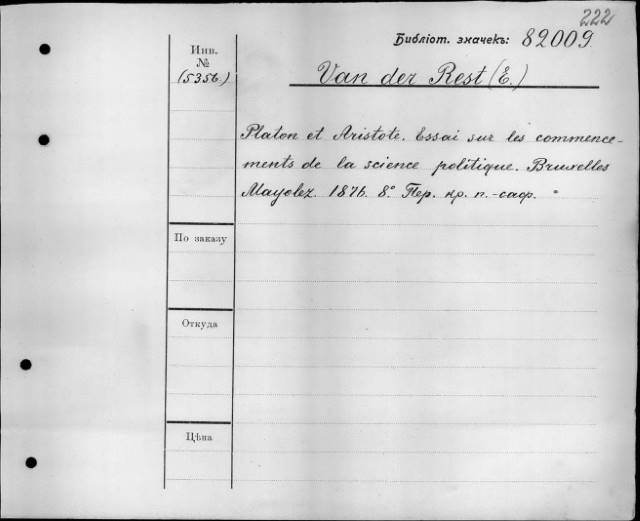 222
Библіот. значекъ: 82009
Инв.
№
(5356)
Van der Rest (E.)
Platon et Aristote. Essai sur les commence-
ments de la science politique. Bruxelles
Mayolez. 1876. 8° Пер. кр. п.-саф.
По заказу
Откуда
Цѣна